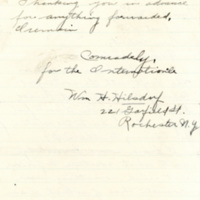 Thanking you in advance
for anything forwarded,
I remain
Comradely,
for the Internationale
Wm H. Hilsdorf
22 Gayfield St.
Rochester N.Y.